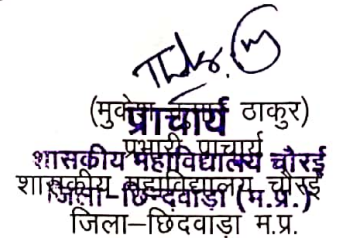 (मुकेश कुमार ठाकुर)
प्राचार्य
प्रभारी प्राचार्य
शासकीय महाविद्यालय चौरई
शासकीय महाविद्यालय चौरई
जिला-छिन्दवाड़ा (म.प्र.)
जिला-छिंदवाड़ा म.प्र.